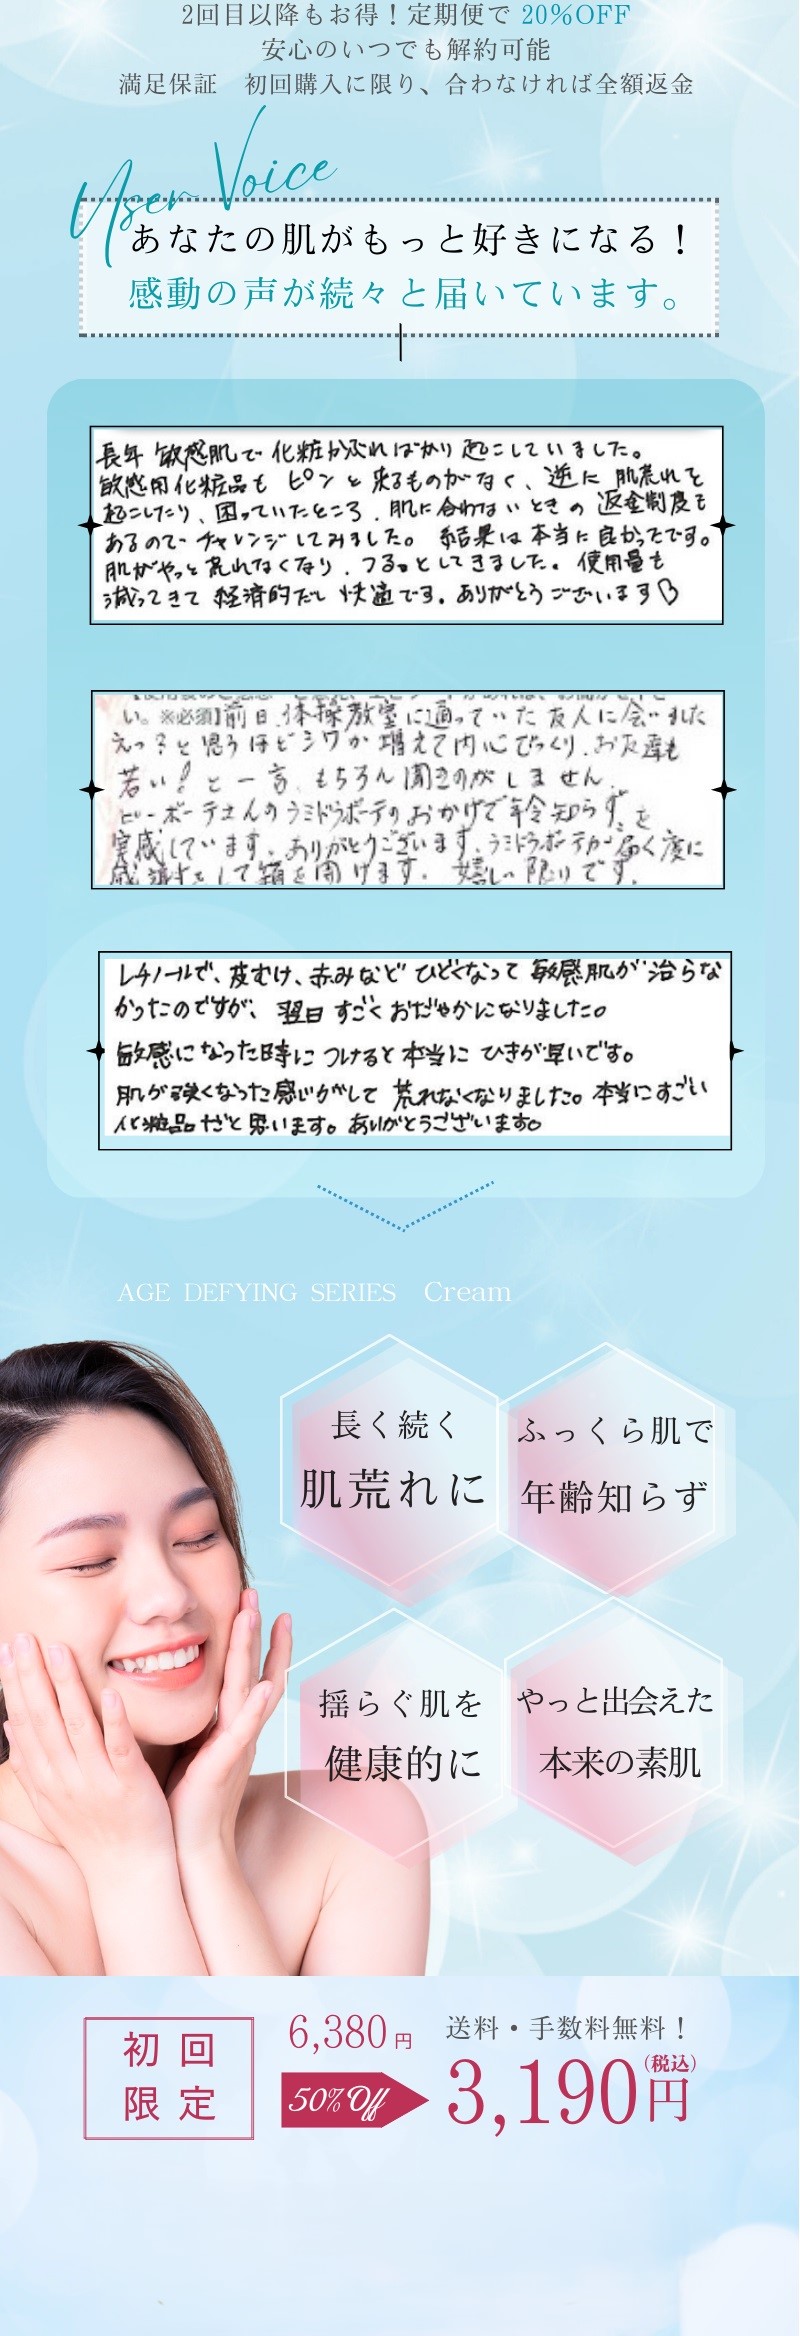 2回目以降もお得！定期便で 20%OFF
安心のいつでも解約可能
満足保証　初回購入に限り、合わなければ全額返金
User Voice
あなたの肌がもっと好きになる！
感動の声が続々と届いています。
長年 敏感肌で 化粧かぶればかり 起こしていました。
敏感用化粧品も ピンと来るものがなく、逆に 肌荒れを
起こしたり、困っていたところ、肌に合わないときの 返金制度も
あるので チャレンジしてみました。 結果は本当に良かったです。
肌がやっと荒れなくなり、つるっとしてきました。使用量も
減ってきて 経済的だし 快適です。ありがとうございます♡
い。※必須】前日、体操教室に通っていた 友人に会いました
えっ？と思うほどシワが 増えて内心びっくり、お友達も
若い！と一言、もちろん聞きのがしません。
ビーボーテさんのラミドラボーテのおかげで年令知らず、を
実感しています、ありがとうございます、ラミドラボーテが届く度に
感謝をして箱を開けます。 嬉しい限りです。
レチノールで、皮むけ、赤みなど ひどくなって 敏感肌が治らな
かったのですが、 翌日 すごく おだやかになりました。
敏感になった時に つけると本当に ひきが早いです。
肌が強くなった感じがして 荒れなくなりました。本当にすごい
化粧品だと思います。ありがとうございます。
AGE DEFYING SERIES　Cream
長く続く
肌荒れに
ふっくら肌で
年齢知らず
揺らぐ肌を
健康的に
やっと出会えた
本来の素肌
初回
限定
6,380円
50% Off
送料・手数料無料！
3,190円(税込)